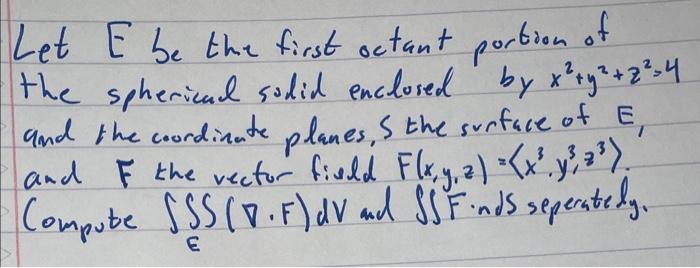 Let E be the first octant portion of
the spherical solid enclosed by x²+y²+z²=4
and the coordinate planes, S the surface of E,
and F the vector field F(x,y,z)=⟨x³,y³,z³⟩.
Compute ∭(∇·F)dV and ∬F·nds seperately.
E